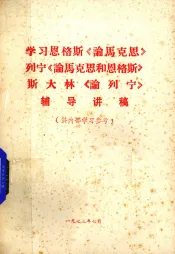 学习恩格斯《論馬克思》
列宁《論馬克思和恩格斯》
斯大林《論列宁》
辅导讲稿
(供内部学习参考)
一九七三年七月